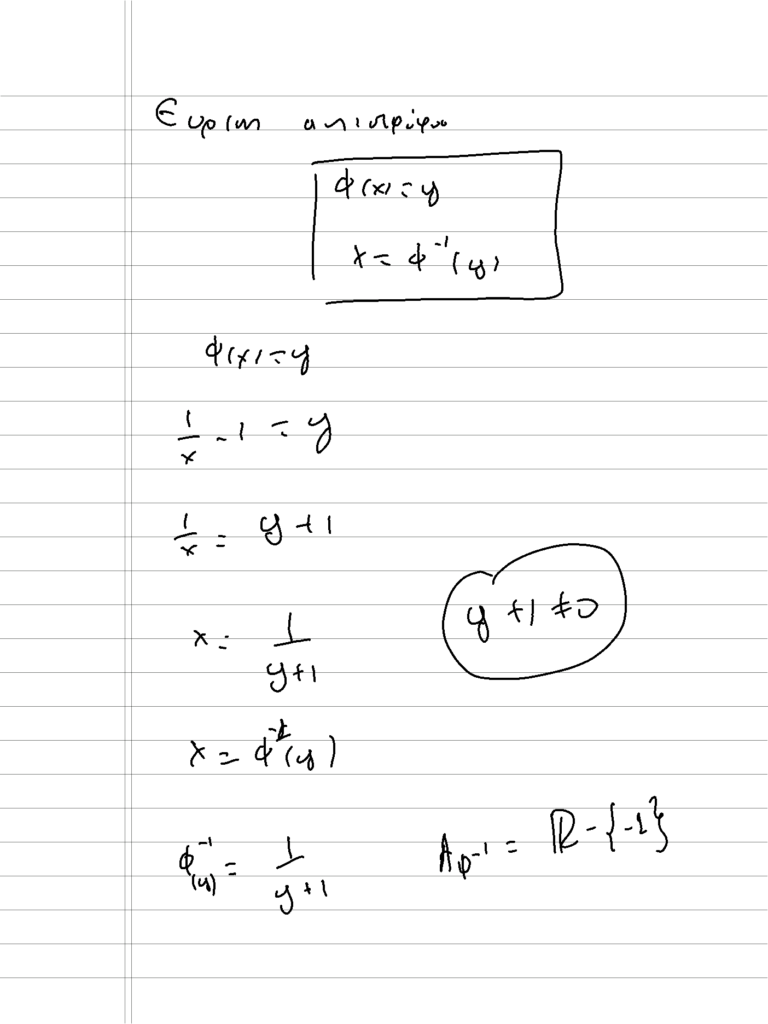 Ευρεση αντιστρόφου
φ(x) = y
x = φ⁻¹(y)
φ(x) = y
1/x - 1 = y
1/x = y + 1
y + 1 ≠ 0
x = 1/(y+1)
x = φ⁻¹(y)
φ⁻¹(y) = 1/(y+1) A_φ⁻¹ = ℝ - {-1}